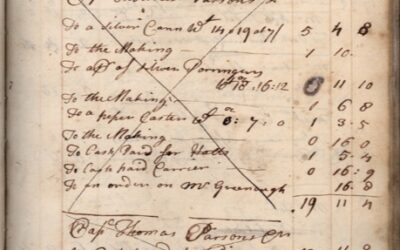 Parsons Jr
To a Silver Cann Wt 14=19 at 7/ 5 4 8
To the Making 1 10
To a pr of Silver Porringers
Wt 18.16:12 11 10
To the Making 1 6 8
To a peper Caster Wt 3:7:0 1 3.5
To the Making 0 16 0
To Cash Paid for Hatts 1 5 4
To Cash paid Carrier 0 16:9
To an order on Mr Greenough 16.8
19 11 4
Capt Thomas Parsons Cr